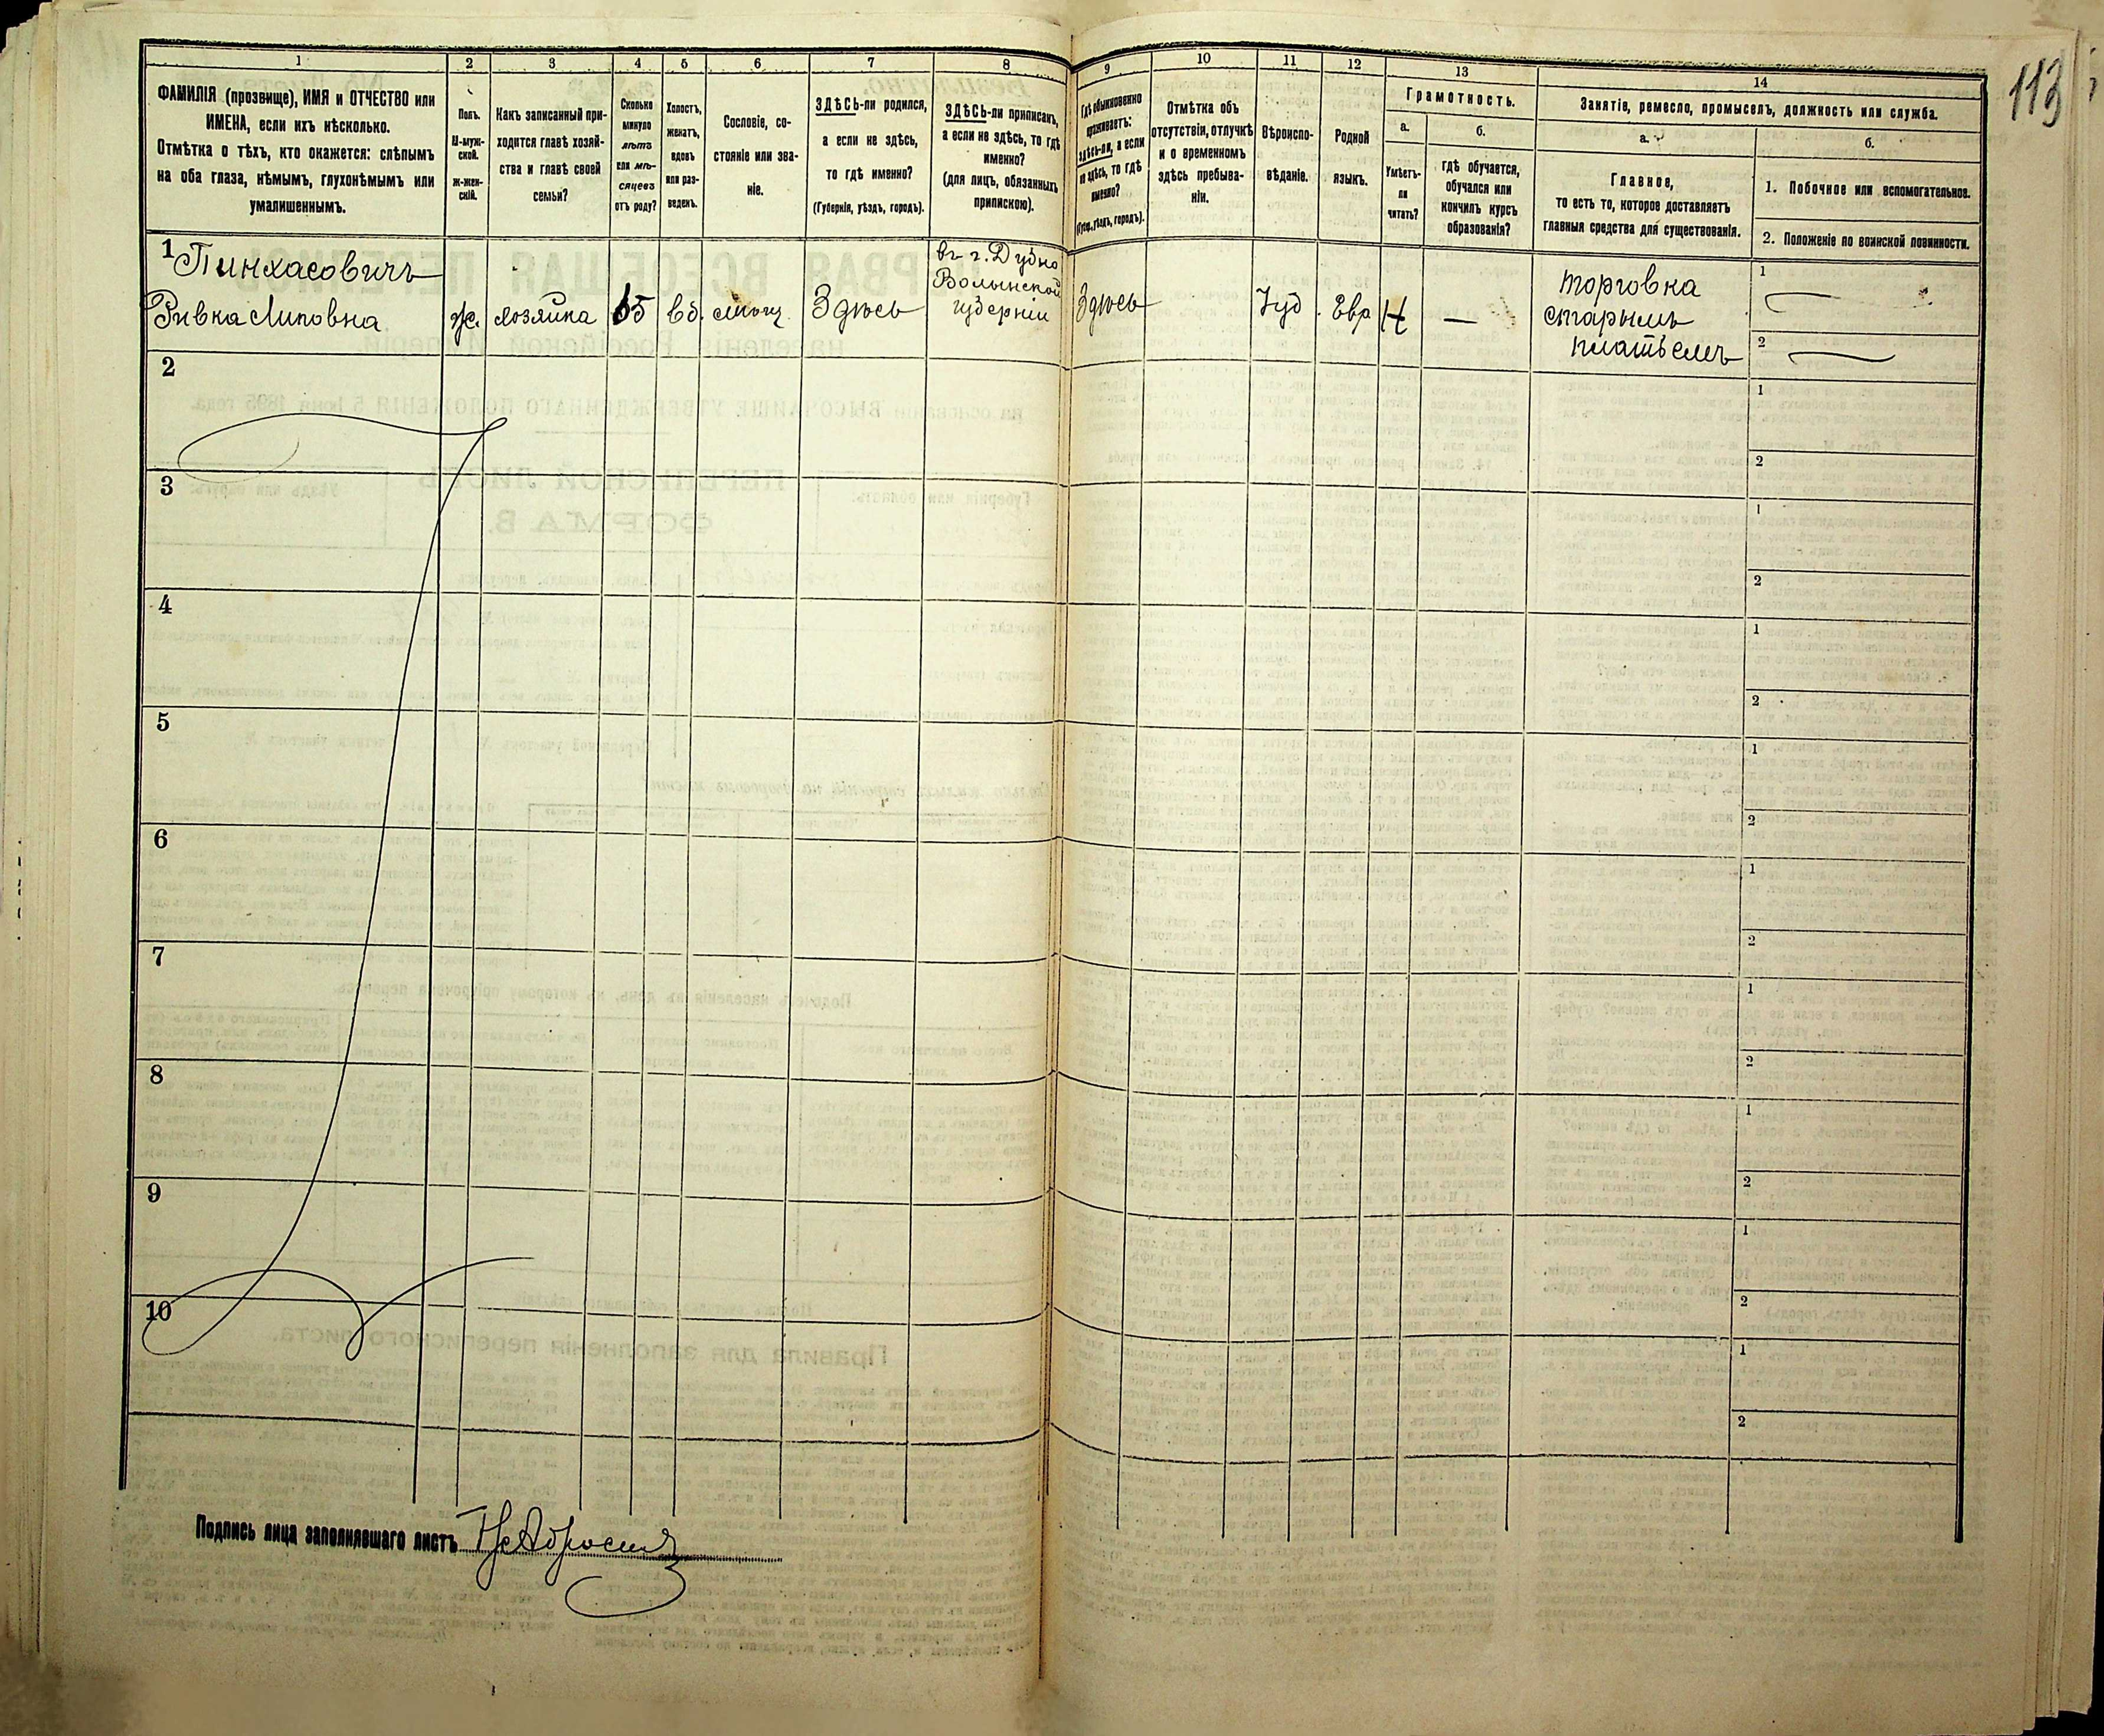 113
1
2
3
4
5
6
7
8
9
10
11
12
13
14
ФАМИЛІЯ (прозвище), ИМЯ и ОТЧЕСТВО или
ИМЕНА, если ихъ нѣсколько.
Отмѣтка о тѣхъ, кто окажется: слѣпымъ
на оба глаза, нѣмымъ, глухонѣмымъ или
умалишеннымъ.
Полъ.
М-муж-
ской.
Ж-жен-
скій.
Какъ записанный при-
ходится главѣ хозяй-
ства и главѣ своей
семьи?
Сколько
минуло
лѣтъ
или мѣ-
сяцевъ
отъ роду?
Холостъ,
женатъ,
вдовъ
или раз-
веденъ.
Сословіе, со-
стояніе или зва-
ніе.
ЗДѢСЬ-ли родился,
а если не здѣсь,
то гдѣ именно?
(Губернія, уѣздъ, городъ).
ЗДѢСЬ-ли приписанъ,
а если не здѣсь, то гдѣ
именно?
(для лицъ, обязанныхъ
припискою).
Гдѣ обыкновенно
проживаетъ:
здѣсь-ли, а если
не здѣсь, то гдѣ
именно?
(Губер., уѣздъ, городъ).
Отмѣтка объ
отсутствіи, отлучкѣ
и о временномъ
здѣсь пребыва-
ніи.
Вѣроиспо-
вѣданіе.
Родной
языкъ.
Грамотность.
а.
Умѣетъ-
ли
читать?
б.
гдѣ обучается,
обучался или
кончилъ курсъ
образованія?
Занятіе, ремесло, промыселъ, должность или служба.
а.
Главное,
то есть то, которое доставляетъ
главныя средства для существованія.
б.
1. Побочное или вспомогательное.
2. Положеніе по воинской повинности.
1 Пинхасовичъ
Ривка Липовна
ж.
хозяйка
65
вд.
мѣщ.
Здѣсь
въ г. Дубно
Волынской
губерніи
Здѣсь
Іуд.
Евр
Н
—
торговка
старымъ
платьемъ
1
2
2
1
2
3
1
2
4
1
2
5
1
2
6
1
2
7
1
2
8
1
2
9
1
2
10
1
2
Подпись лица заполнявшаго листъ